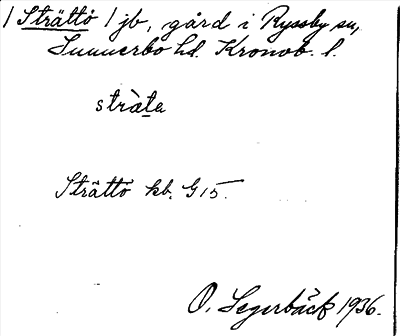 / Strättö / jb, gård i Ryssby sn,
Sunnerbo hd. Kronob. l.
stràta
Strättö kb. G15.
O. Segerbäck 1936.